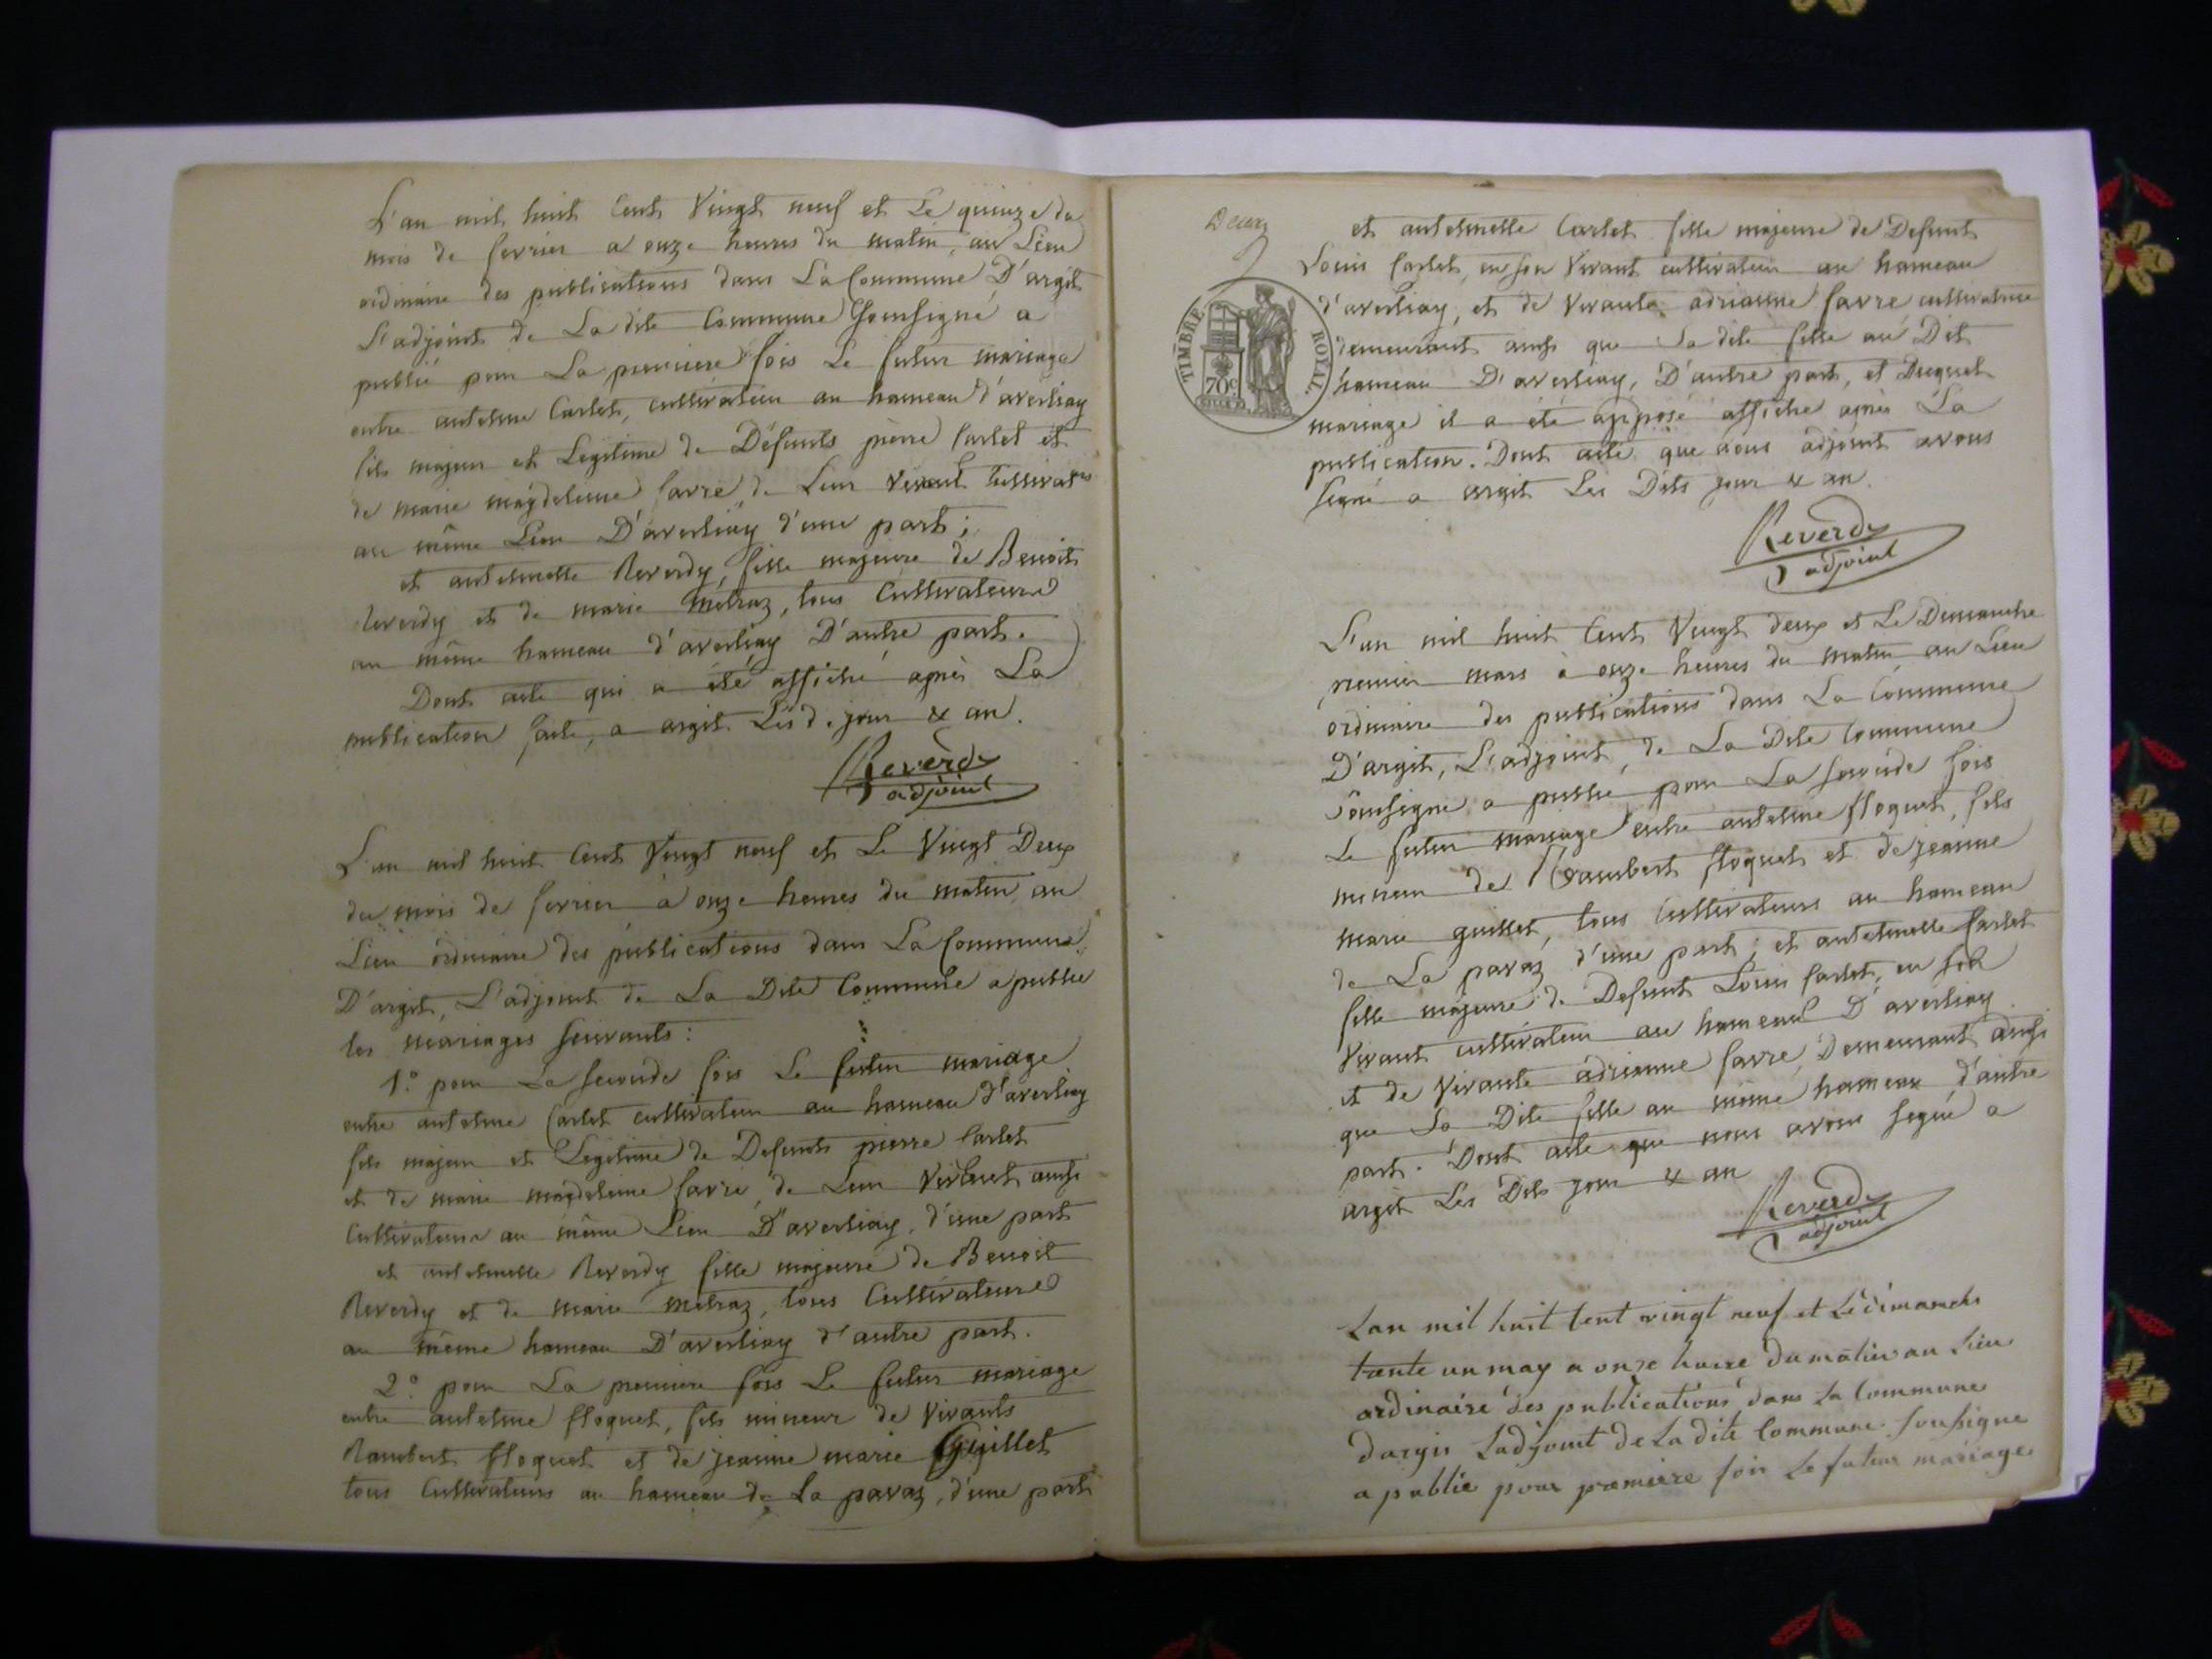 L'an mil huit Cent Vingt neuf et Le quinze du
mois de fevrier a onze heures du matin, au Lieu
ordinaire des publications dans La Commune D'argit
L'adjoint de La dite Commune Soussigné a
publié pour La premiere fois Le futur mariage
entre antelme Carlet, cultivateur au hameau d'averliay
fils majeur et Legitime de Défunts pierre Carlet et
de marie magdeleine favre, de Leur Vivant
au même Lieu D'averliay d'une part;
et antelmette Reverdy, fille majeure de Benoit
Reverdy et de marie métraz, tous Cultivateurs
au même hameau d'averliay D'autre part.
Dont acte qui a été affiché après La
publication faite, a argit Les d. jour & an.
Reverdy
adjoint
L'an mil huit Cent Vingt neuf et Le Vingt Deux
du mois de fevrier à onze heures du matin, au
Lieu ordinaire des publications dans La Commune
D'argit, L'adjoint de La Dite Commune a publié
les mariages suivants:
1.° pour La seconde fois Le futur mariage
entre antelme Carlet cultivateur au hameau d'averliay
fils majeur et Legitime de Defunts pierre Carlet
et de marie magdeleine favre, de Leur Vivant aussi
Cultivateurs au même Lieu D'averliay, d'une part
et antelmette Reverdy fille majeure de Benoit
Reverdy et de marie métraz, tous Cultivateurs
au même hameau D'averliay d'autre part.
2.° pour La premiere fois Le futur mariage
entre antelme floquet, fils mineur de Vivants
Rambert floquet et de jeanne marie Guillet
tous Cultivateurs au hameau de La pavaz, d'une part
Deux
et antelmette Carlet fille majeure de Defunt
Louis Carlet, en son Vivant cultivateur au hameau
d'averliay, et de Vivante adrianne favre cultivatrice
demeurant aussi que La dite fille au Dit
hameau D'averliay, D'autre part, et Duquel
mariage il a été apposé affiche après La
publication. Dont acte que nous adjoint avons
signé a argit Les Dits jour & an.
TIMBRE ROYAL
70c
Reverdy
adjoint
L'an mil huit Cent Vingt deux et Le Dimanche
premier mars à onze heures du matin, au Lieu
ordinaire des publications dans La Commune
D'argit, L'adjoint, de La Dite Commune
Soussigné a publié pour La seconde fois
Le futur mariage entre antelme floquet, fils
mineur de Rambert floquet et de jeanne
marie guillet, tous Cultivateurs au hameau
de La pavaz d'une part; et antelmette Carlet
fille majeure de Defunt Louis Carlet, en son
Vivant cultivateur au hameau D'averliay
et de Vivante adrianne favre, Demeurant aussi
que La Dite fille au même hameau d'autre
part. Dont acte que nous avons signé a
argit Les Dits jour & an
Reverdy
adjoint
Lan mil huit Cent vingt neuf et Le dimanche
trente un may a onze heure Du matin au Lieu
ordinaire des publications dans La Commune
dargis Ladjoint De La dite Commune soussigne
a publie pour premiere fois Le futur mariage